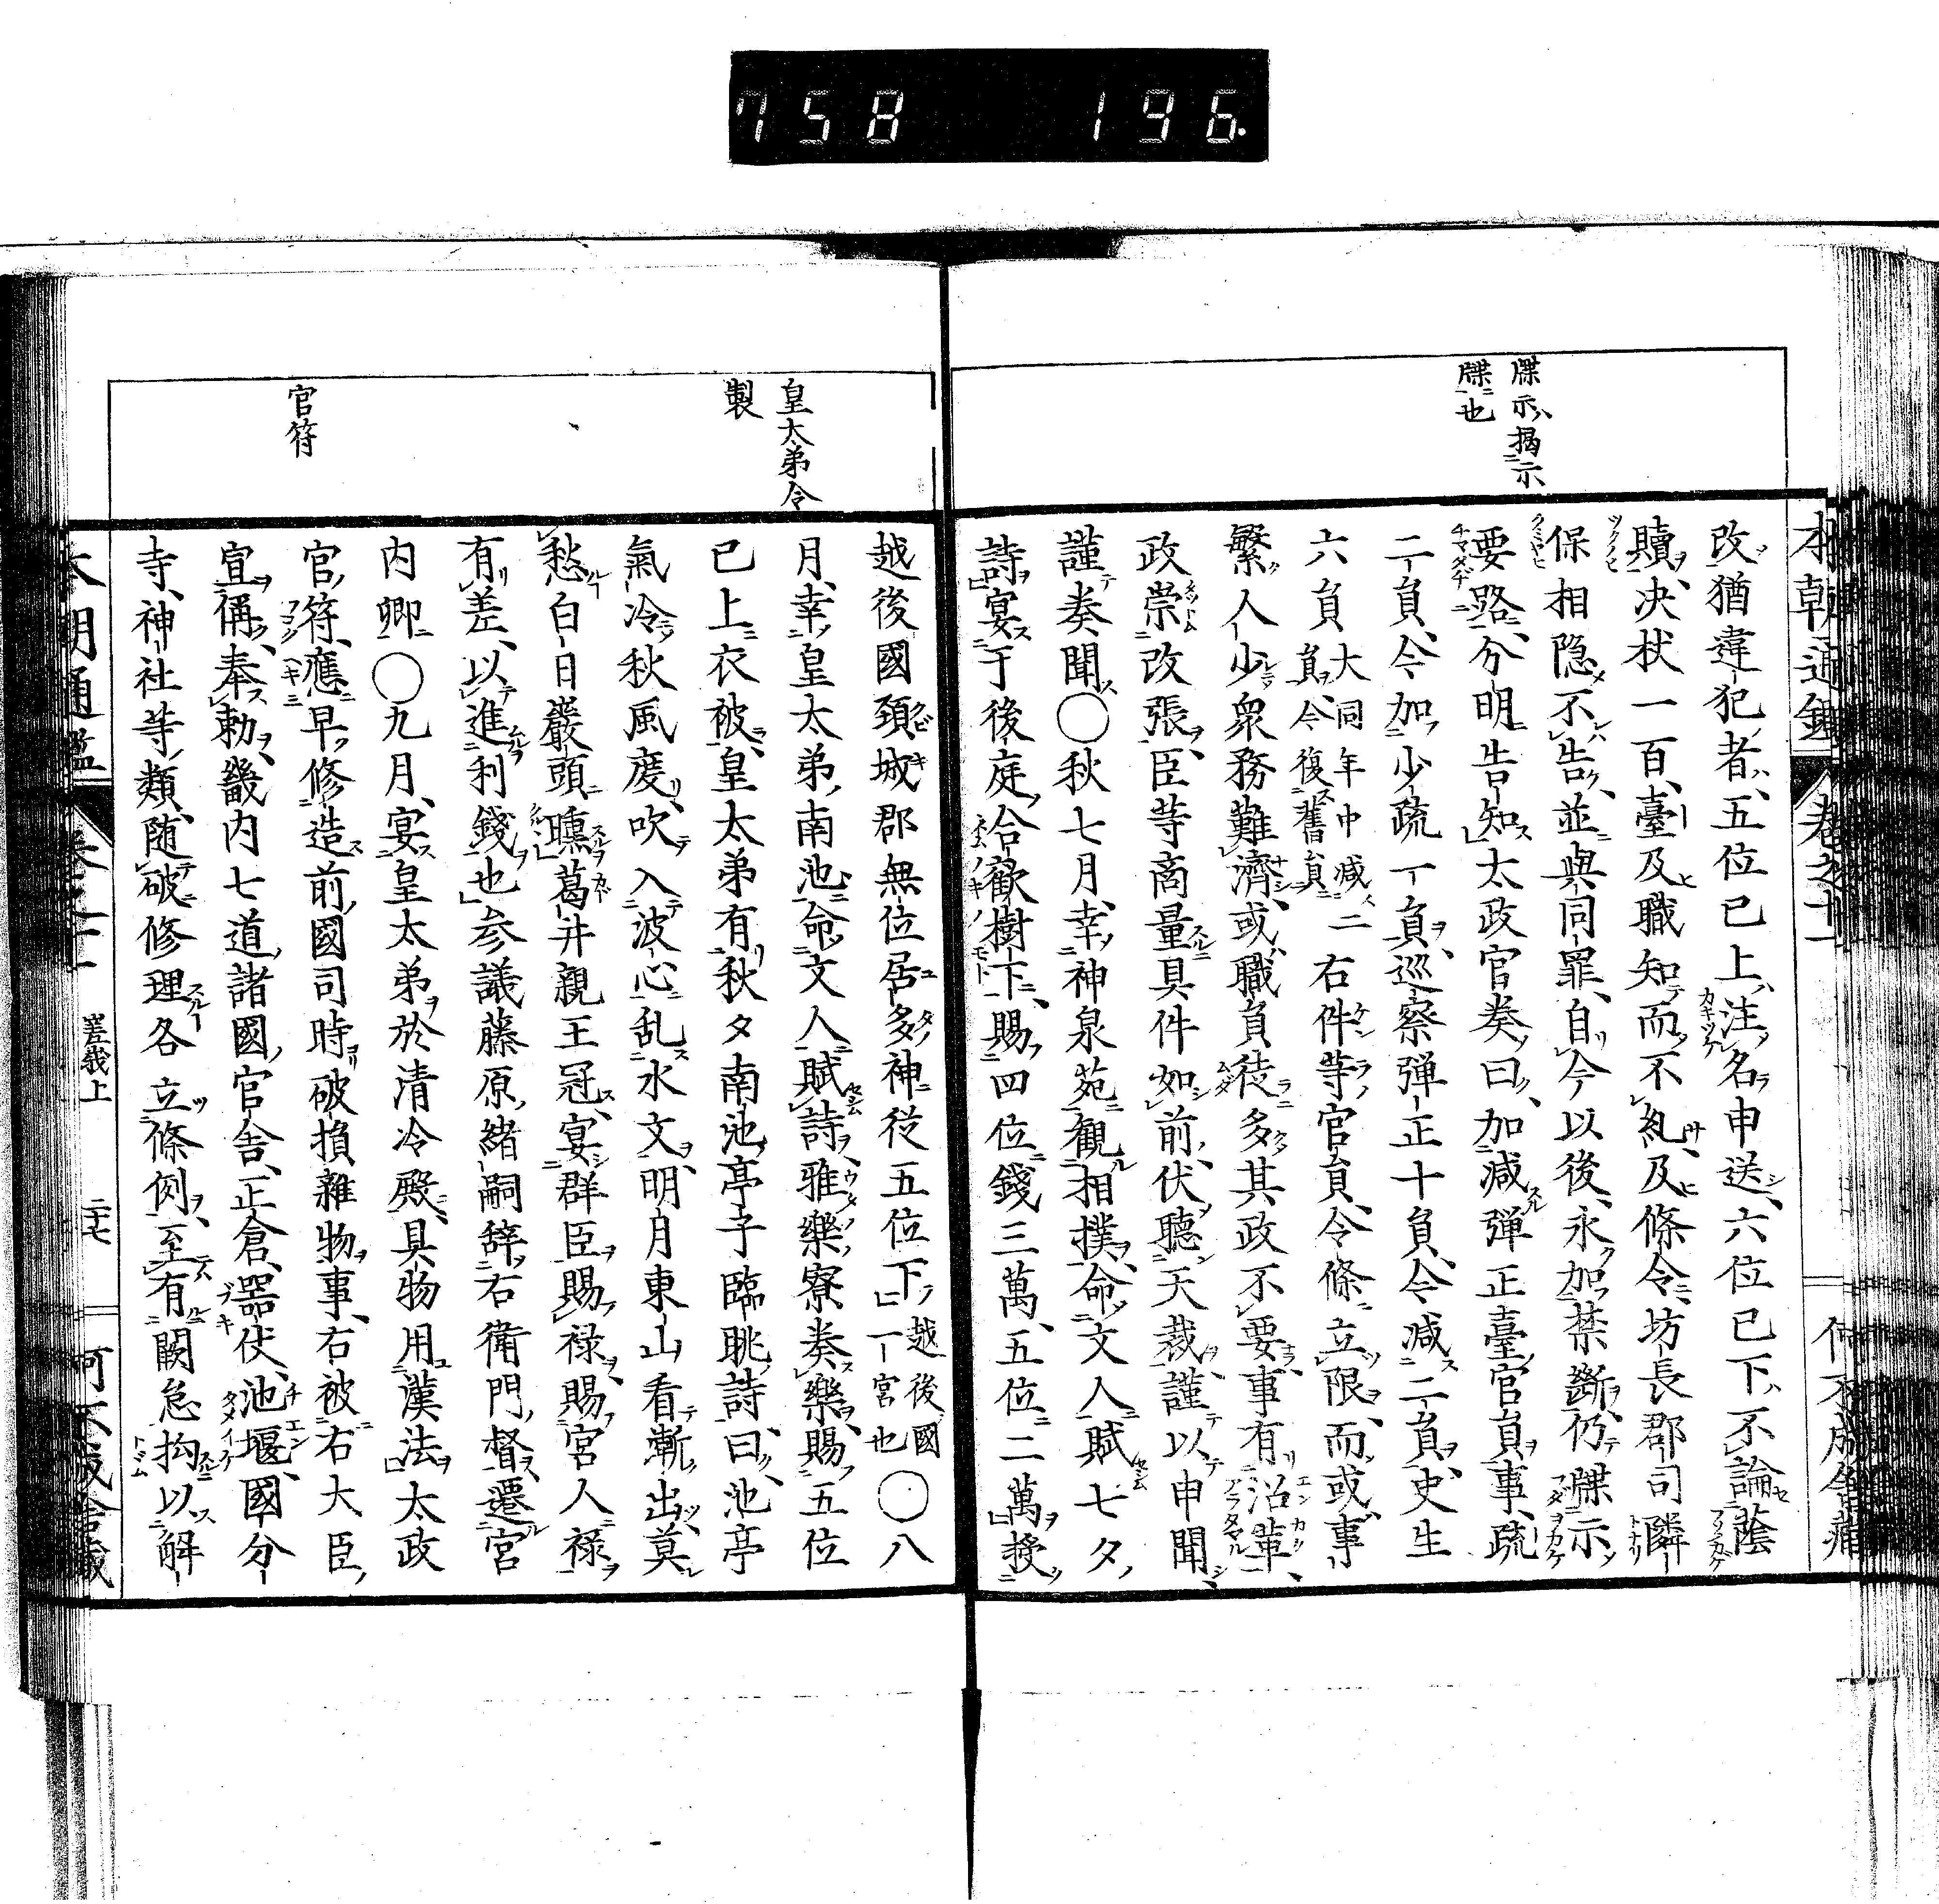 758 196.
牒示ハ掲示
牒ニ也
改猶違犯者五位已上注名申送六位已下不論蔭
贖决杖一百臺及職知而不糺及條令坊長郡司隣
保相隠不告並與同罪自今以後永加禁斷仍牒示
要路分明告知太政官奏曰加減弾正臺官員事疏
二員今加少疏一員巡察弾正十員今減二員史生
六員大同年中減二員今復舊員右件等官員令條立限而或事
繁人少衆務難濟或職員徒多其政不要事有沿革
政崇改張臣等商量具件如前伏聽天裁謹以申聞
謹奏聞〇秋七月幸神泉苑觀相撲命文人賦七夕
詩宴于後庭合歡樹下賜四位錢三萬五位二萬授
皇太弟令
製
官符
越後國頚城郡無位居多神從五位下越後國一宮也〇八
月幸皇太弟南池命文人賦詩雅樂寮奏樂賜五位
已上衣被皇太弟有秋夕南池亭子臨眺詩曰池亭
氣冷秋風度吹入波心乱水文明月東山看漸出莫
愁白日巖頭曛葛井親王冠宴群臣賜禄賜宮人禄
有差以進利錢也参議藤原緒嗣辞右衛門督遷宮
内卿〇九月宴皇太弟於清冷殿具物用漢法太政
官符應早修造前國司時破損雜物事右被右大臣
宣偁奉勅畿内七道諸國官舎正倉器仗池堰國分
寺神社等類随破修理各立條例至有闕怠拘以解
嵯峨上
二十七